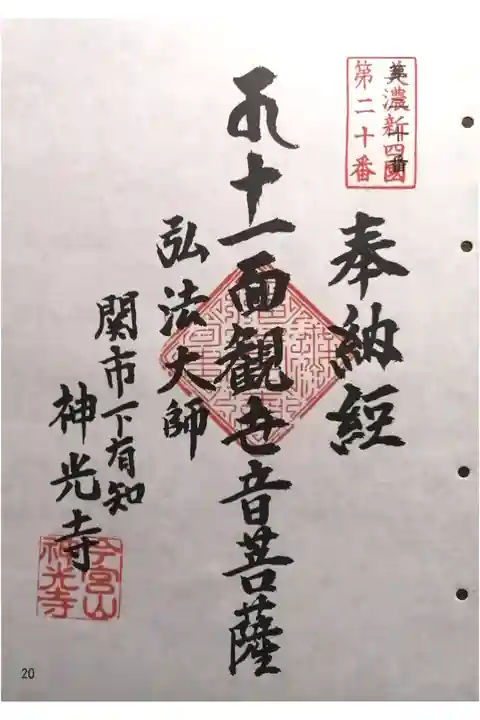 美濃新四國
第二十番
奉納経
十一面観世音菩薩
弘法大師
関市下有知
神光寺
今宮山
神光寺
20